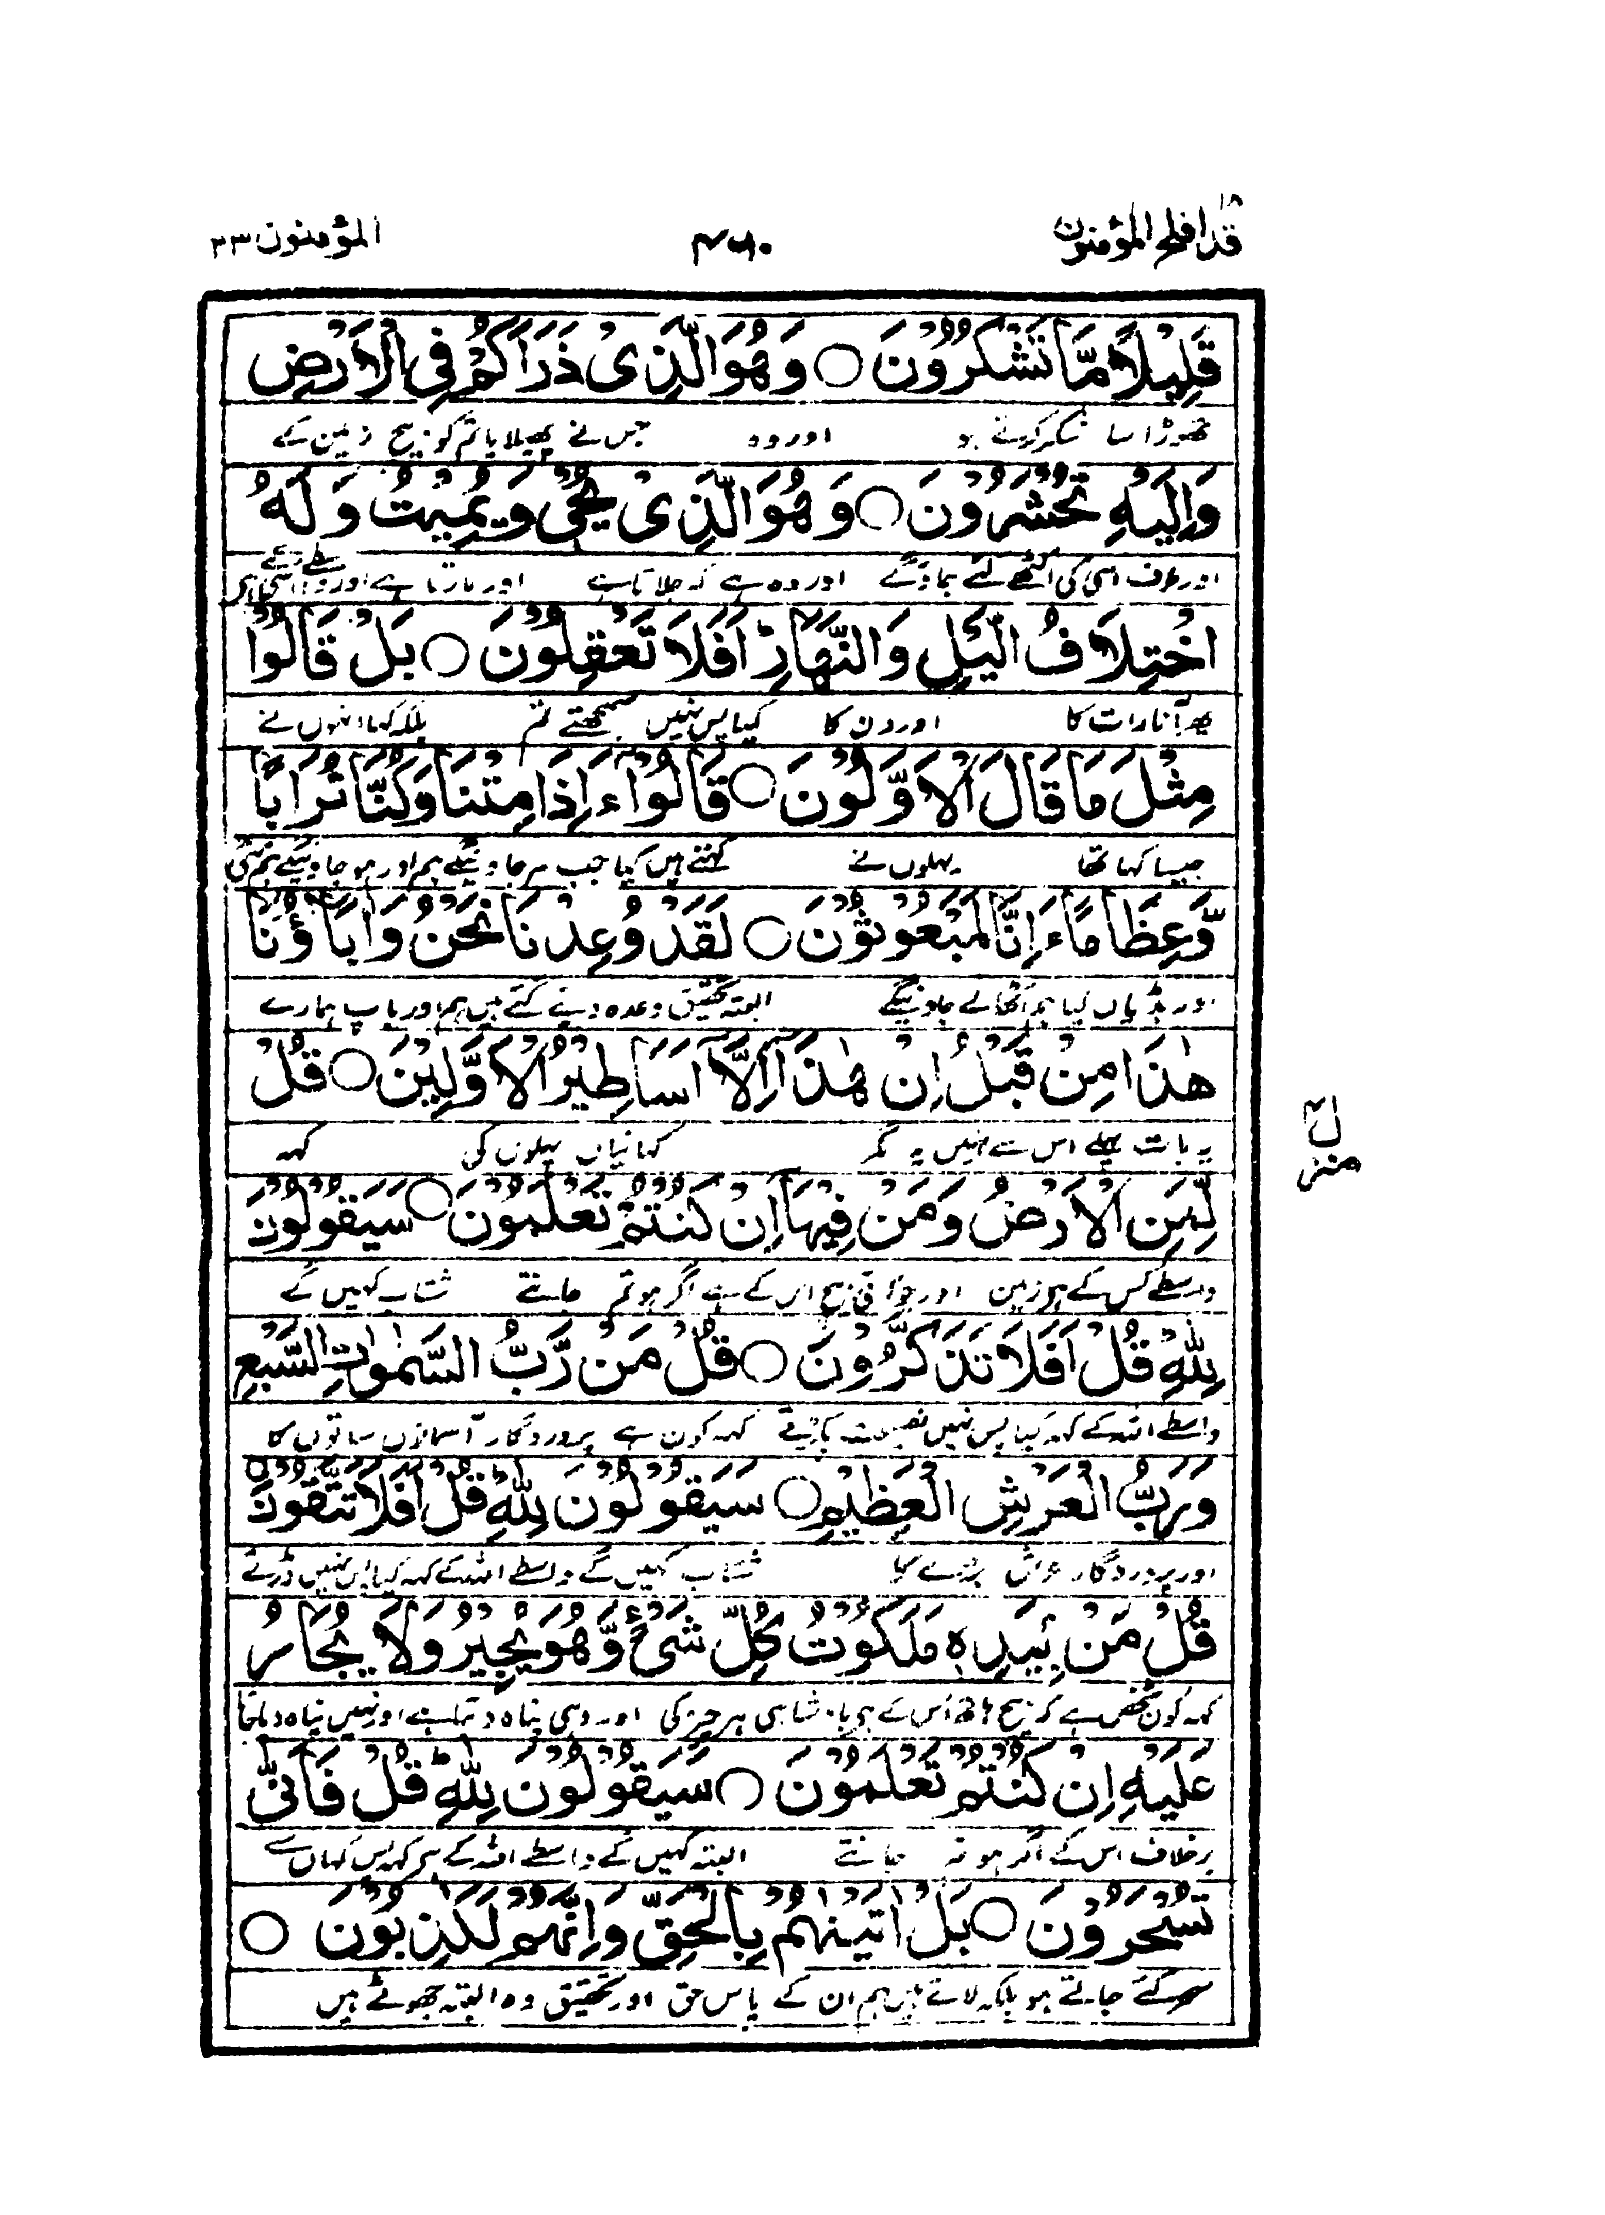 قد افلح المؤمنون ۱۸
۴۶۰
المؤمنون ۲۳
قَلِيْلًا مَّا تَشْكُرُوْنَ ○ وَهُوَ الَّذِىْ ذَرَاَكُمْ فِى الْاَرْضِ
تھوڑا سا شکر کرتے ہو اور وہ جس نے پھیلایا تم کو بیچ زمین کے
وَاِلَيْهِ تُحْشَرُوْنَ ○ وَهُوَ الَّذِىْ يُحْىٖ وَيُمِيْتُ وَلَهُ
اور طرف اسی کی اکٹھے کئے جاؤگے اور وہ ہے کہ جلاتا ہے اور مارتا ہے اور واسطے اسی کے ہے
اخْتِلَافُ الَّيْلِ وَالنَّهَارِ ؕ اَفَلَا تَعْقِلُوْنَ ○ بَلْ قَالُوْا
پھر آنا رات کا اور دن کا کیا پس نہیں سمجھتے تم بلکہ کہا انہوں نے
مِثْلَ مَا قَالَ الْاَوَّلُوْنَ ○ قَالُوْٓا ءَاِذَا مِتْنَا وَكُنَّا تُرَابًا
جیسا کہا تھا پہلوں نے کہتے ہیں کیا جب مر جاوینگے ہم اور ہو جاوینگے ہم مٹی
وَّعِظَامًا ءَاِنَّا لَمَبْعُوْثُوْنَ ○ لَقَدْ وُعِدْنَا نَحْنُ وَاٰبَآؤُنَا
اور ہڈیاں کیا ہم اٹھائے جاوینگے البتہ تحقیق وعدہ دیئے گئے ہیں ہم اور باپ ہمارے
هٰذَا مِنْ قَبْلُ اِنْ هٰذَآ اِلَّآ اَسَاطِيْرُ الْاَوَّلِيْنَ ○ قُلْ
یہ بات پہلے اس سے نہیں یہ مگر کہانیاں پہلوں کی کہہ
لِّمَنِ الْاَرْضُ وَمَنْ فِيْهَآ اِنْ كُنْتُمْ تَعْلَمُوْنَ ○ سَيَقُوْلُوْنَ
واسطے کس کے ہے زمین اور جو کوئی بیچ اس کے ہے اگر ہو تم جانتے شتاب کہیں گے
لِلّٰهِ قُلْ اَفَلَا تَذَكَّرُوْنَ ○ قُلْ مَنْ رَّبُّ السَّمٰوٰتِ السَّبْعِ
واسطے اللہ کے کہہ کیا پس نہیں نصیحت پکڑتے کہہ کون ہے پروردگار آسمانوں ساتوں کا
وَرَبُّ الْعَرْشِ الْعَظِيْمِ ○ سَيَقُوْلُوْنَ لِلّٰهِ ؕ قُلْ اَفَلَا تَتَّقُوْنَ ○
اور پروردگار عرش بڑے کا شتاب کہیں گے واسطے اللہ کے کہہ کیا پس نہیں ڈرتے
قُلْ مَنْۢ بِيَدِهٖ مَلَكُوْتُ كُلِّ شَىْءٍ وَّهُوَ يُجِيْرُ وَلَا يُجَارُ
کہہ کون شخص ہے کہ بیچ ہاتھ اس کے ہی بادشاہی ہر چیز کی اور وہی پناہ دیتا ہے اور نہیں پناہ دیا جاتا
عَلَيْهِ اِنْ كُنْتُمْ تَعْلَمُوْنَ ○ سَيَقُوْلُوْنَ لِلّٰهِ ؕ قُلْ فَاَنّٰى
برخلاف اس کے اگر ہو تم جانتے البتہ کہیں گے واسطے اللہ کے ہے کہہ پس کہاں سے
تُسْحَرُوْنَ ○ بَلْ اَتَيْنٰهُمْ بِالْحَقِّ وَاِنَّهُمْ لَكٰذِبُوْنَ ○
سحر کئے جاتے ہو بلکہ لائے ہیں ہم ان کے پاس حق اور تحقیق وہ البتہ جھوٹے ہیں
منزل ۴